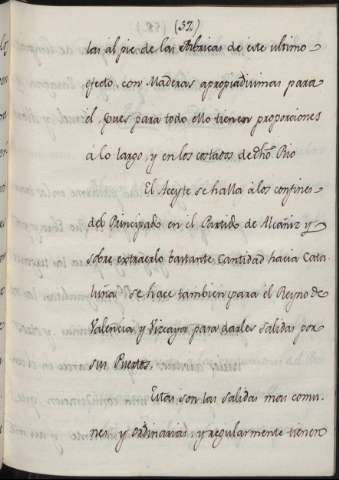 (37)
tas al pie de las Fabricas de este ultimo
efecto con Maderas apropiadisimas para
el pues para todo ello tienen proporciones
à lo largo, y en los costados de dho. Rio
El Aceyte se halla à los confines
del Principado en el Partido de Alcañiz y
sobre extraerlo bastante Cantidad hacia Cata
luña se hace tambien para el Reyno de
Valencia y Vizcaya para darles salidas por
sus Puertos.
Estas son las salidas mas comu
nes, y ordinarias, y regularmente tienen